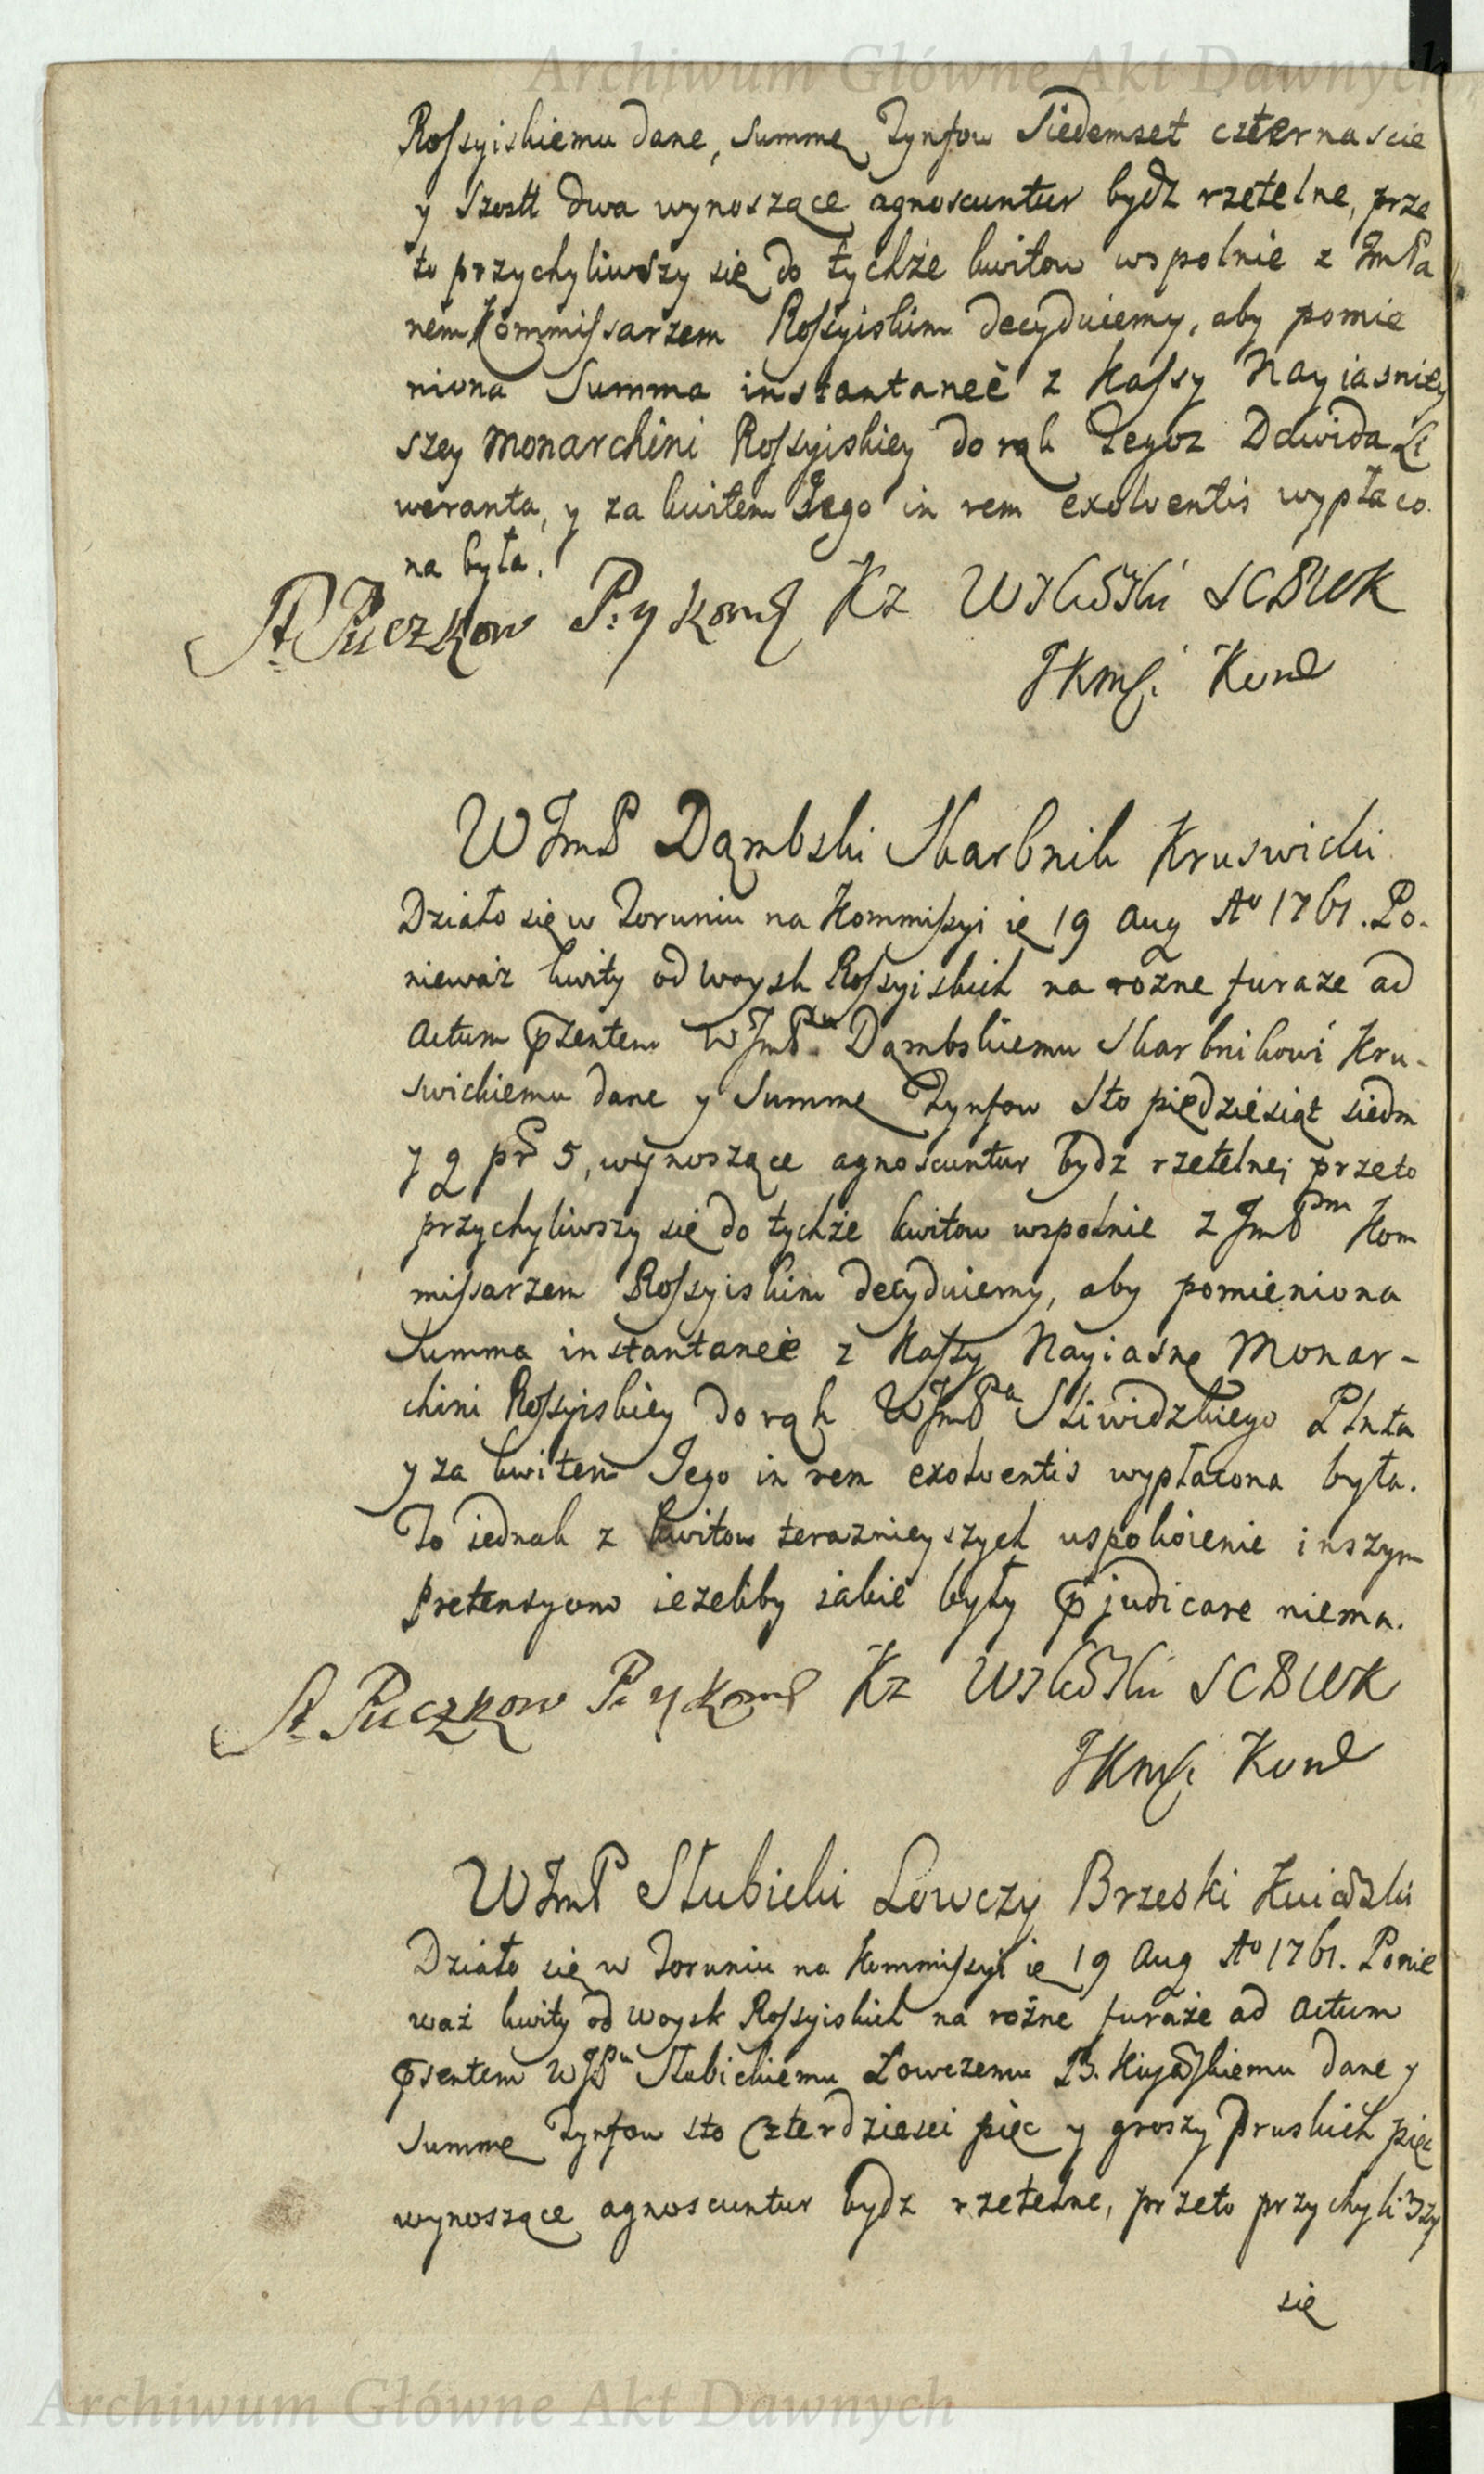 Archiwum Główne Akt Dawnych
Rossyiskiemu dane, summę Tynfow Siedemset czternascie
y Szostt dwa wynoszące agnoscuntur bydz rzetelne, prze
to przychyliwszy się do tychże kwitow wspolnie z ImPa
nem Kommissarzem Rossyiskim decyduiemy, aby pomie
niona Summa instantaneè z Kassy Nayiasniey
szey Monarchini Rossyiskiey do rąk Tegoz Dawida Li
weranta, y za kwitem Jego in rem exolventis wypłaco
na była.
St Puczkow P: y Kom Kz SCBWK
JKMsi Kom
W JmP Dąmbski Skarbnik Kruswicki
Działo się w Toruniu na Kommissyi ię 19 Aug Ao 1761. Po-
nieważ kwity od woysk Rossyiskich na rozne furaze ad
Actum pzentem WJmP Dąmbskiemu Skarbnikowi Kru-
swickiemu dane y Summę Tynfow sto piędziesiąt siedm
y g pr 5, wynoszące agnoscuntur bydz rzetelne; przeto
przychyliwszy się do tychże kwitow wspolnie z JmPm Kom
missarzem Rossyiskim decyduiemy, aby pomieniona
Summa instantaneè z Kassy Nayiasnę Monar-
chini Rossyiskiey do rąk WJmPa Pltnta
y za kwitem Jego in rem exolventis wypłacona była.
To iednak z kwitow teraznieyszych uspokoienie inszym
pretensyom iezeliby iakie były pjudicare niema.
St Puczkow P: y Kom Kz SCBWK
JKMsi Kom
WJmP Słubicki Łowczy Brzeski Kuiawski
Działo się w Toruniu na Kommissyi ię 19 Aug Ao 1761. Ponie
waż kwity od woysk Rossyiskich na rożne furaże ad Actum
psentem WJPu Słubickiemu Łowczemu B. Kujawskiemu dane y
summę Tynfow sto czterdziesci pięc y groszy Pruskich pięc
wynoszące agnoscuntur bydz rzetelne, przeto przychyliwszy
się
Archiwum Główne Akt Dawnych